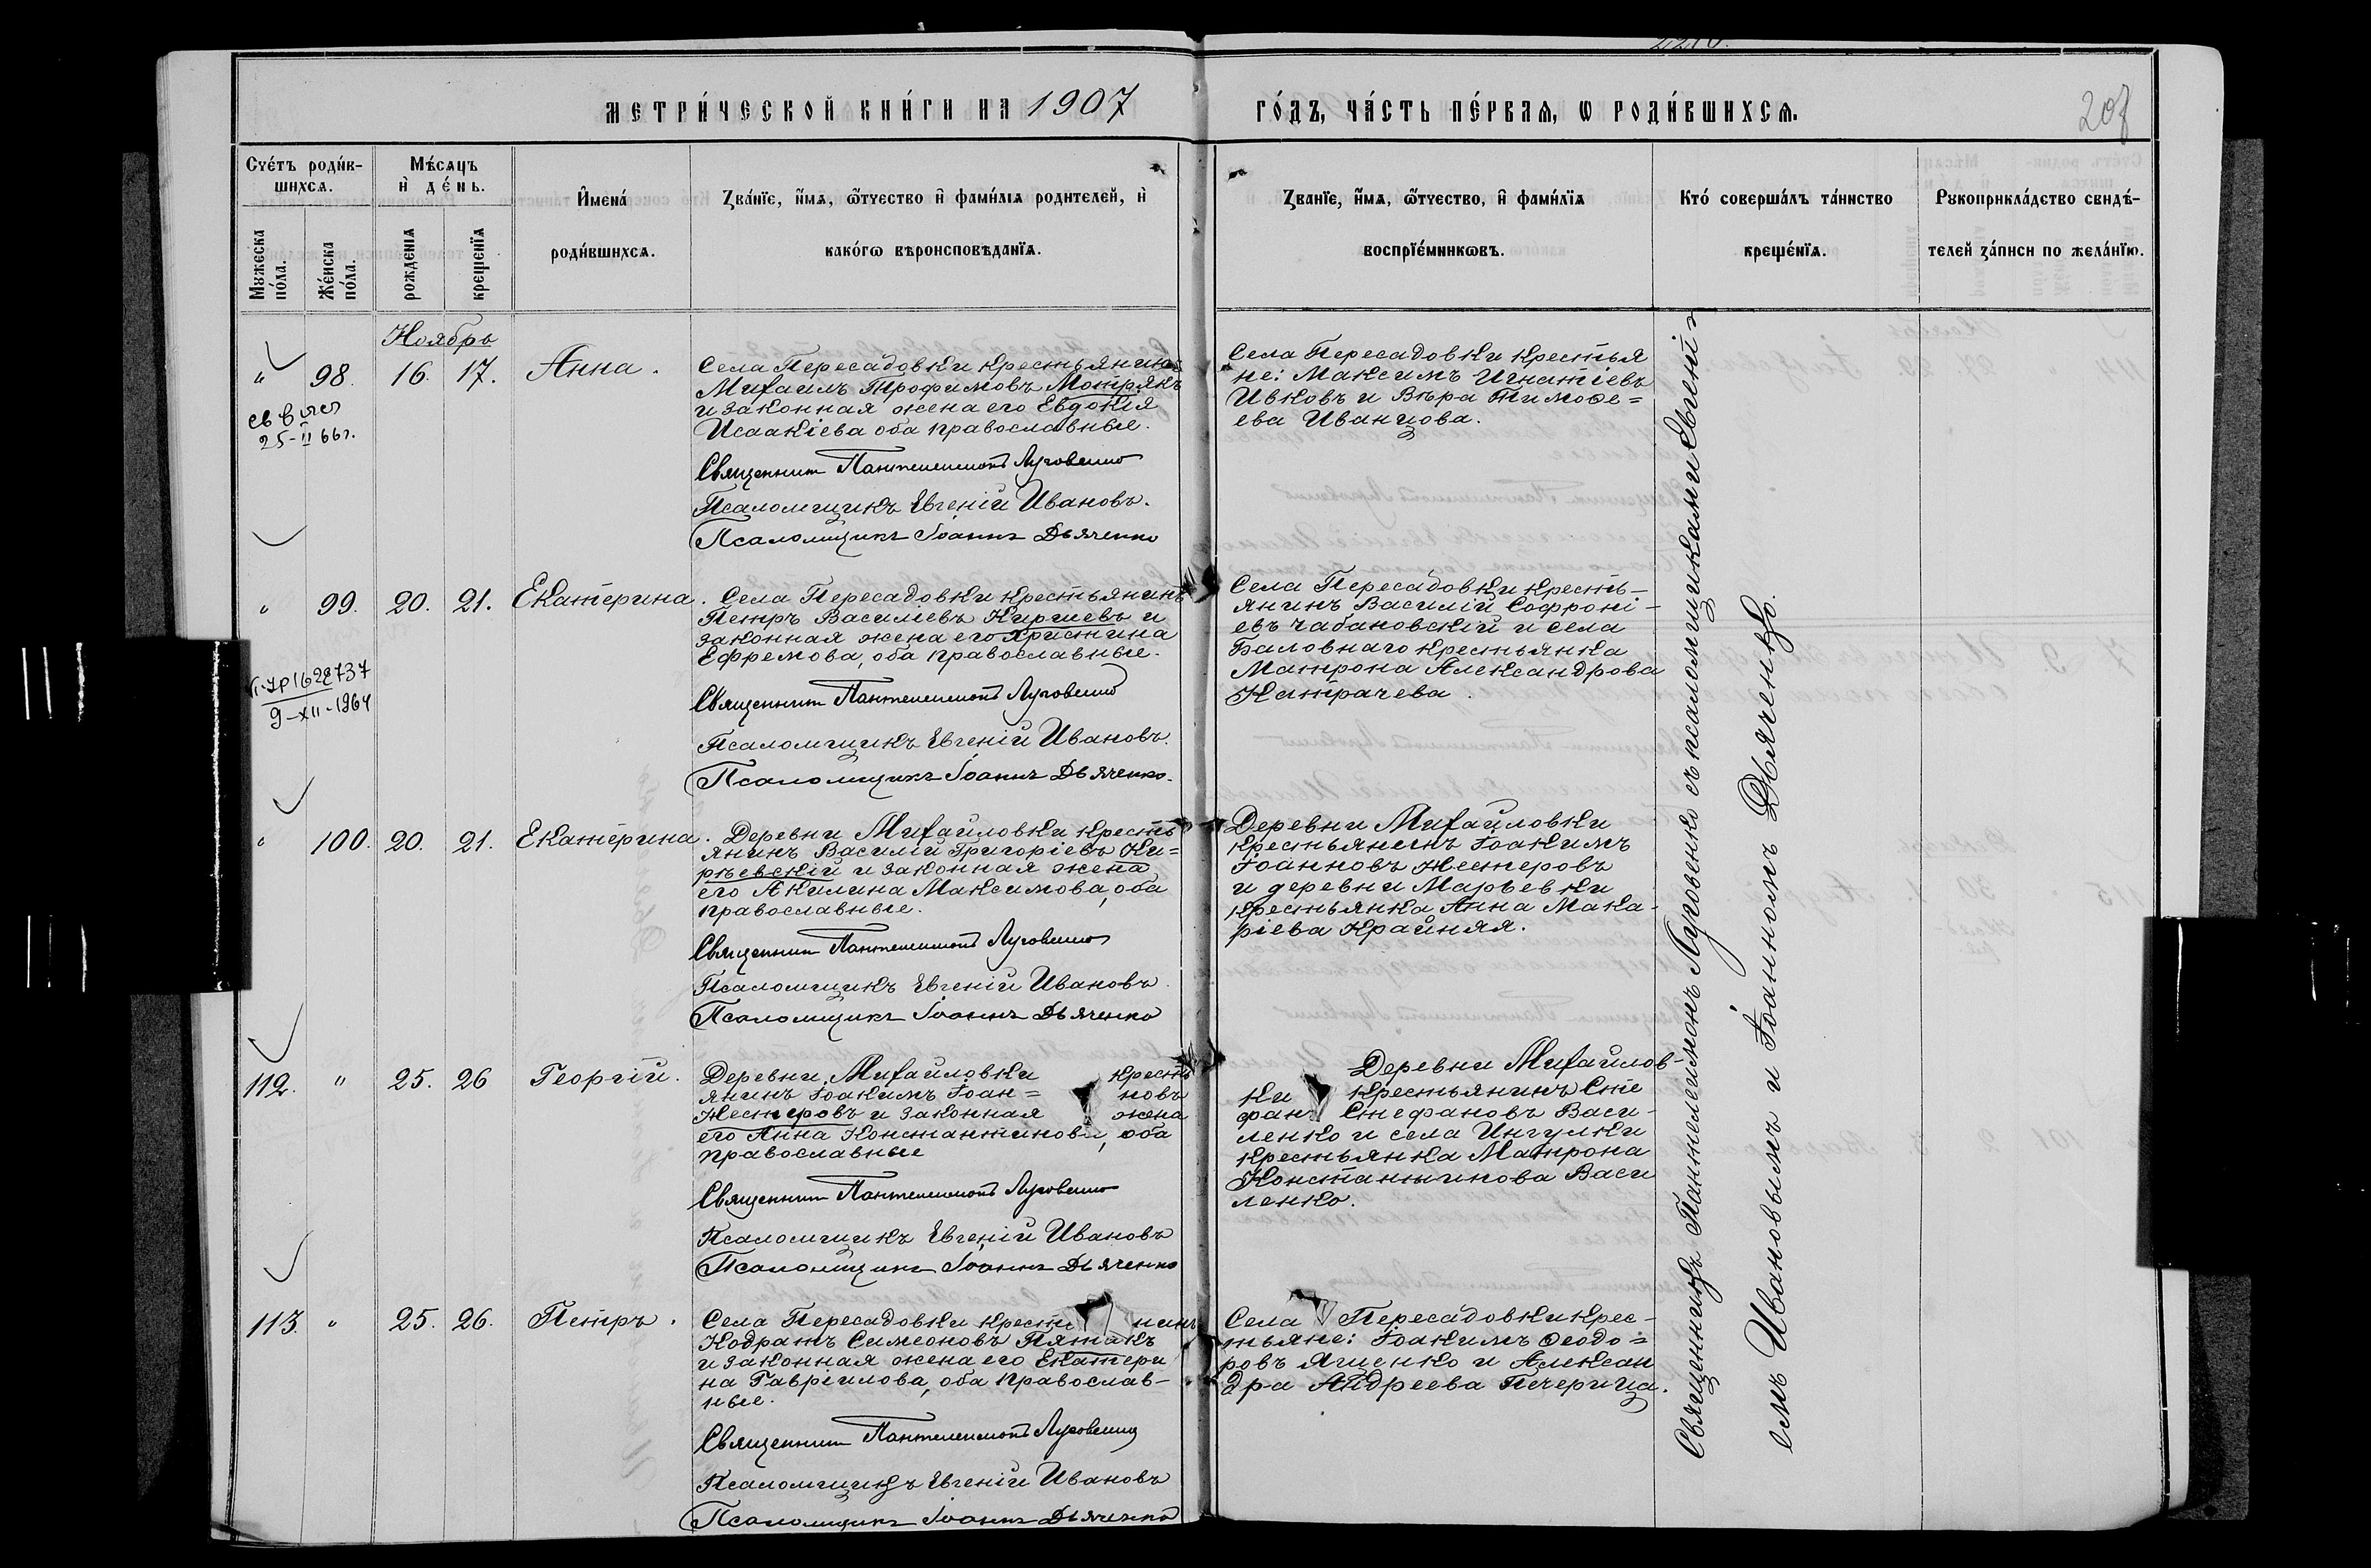 МЕТРИ́ЧЕСКОЙ КНИ́ГИ НА 1907 ГО́ДЪ, ЧА́СТЬ ПЕ́РВАѦ, Ѡ РОДИ́ВШИХСѦ.
Счéтъ роди́вшихсѧ.
Мꙋжеска по́ла.
Же́нска по́ла.
Мѣ́сѧцъ и҆ де́нь.
рожденіѧ
крещенїѧ
И҆мена́ роди́вшихсѧ.
Зва́нїе, и҆́мѧ, ѻ҆́тчество и҆ фамѝлїѧ родителей, и҆
како́гѡ вѣроисповѣданїѧ.
Званїе, и҆́мѧ, ѻ҆́тчество, и҆ фами́лїѧ
воспрїе́мникѡвъ.
Кто́ соверша́лъ та́инство
креще́нїѧ.
Рꙋкоприкла́дство свидѣ-
телей за́писи по жела́нїю.
Ноябрь
" 98. 16. 17. Анна.
25-II 66г.
Села Пересадовки крестьянинъ
Михаилъ Трофимовъ Мотрякъ
и законная жена его Евдокія
Исаакіева оба православные.
Священник Пантелеимонъ Луговенко
Псаломщикъ Евгеній Ивановъ.
Псаломщикъ Іоаннъ Дьяченко
Села Пересадовки крестья
не: Максимъ Игнатіевъ
Ивковъ и Вѣра Тимоѳе=
ева Иванцова.
" 99. 20. 21. Екатерина.
9-XII-1964
Села Пересадовки крестьянинъ
Петръ Василіевъ Киргиевъ и
законная жена его Христина
Ефремова, оба православные.
Священник Пантелеимонъ Луговенко
Псаломщикъ Евгеній Ивановъ.
Псаломщикъ Іоаннъ Дьяченко.
Села Пересадовки кресть-
янинъ Василій Софроні-
евъ Чабановскій и села
Баловнаго крестьянка
Матрона Александрова
Катрачева.
" 100. 20. 21. Екатерина.
Деревни Михайловки кресть
янинъ Василій Григоріевъ Ки=
рѣевскій и законная жена
его Акилина Максимова, оба
православные.
Священник Пантелеимонъ Луговенко
Псаломщикъ Евгеній Ивановъ.
Псаломщикъ Іоаннъ Дьяченко
Деревни Михайловки
крестьянинъ Іоакимъ
Іоанновъ Нестеровъ
и деревни Марьевки
крестьянка Анна Мака-
ріева Крайняя.
112. " 25. 26 Георгій.
Деревни Михайловки кресть
янинъ Іоакимъ Іоан= новъ
Нестеровъ и законная жена
его Анна Константинова, оба
православные
Священник Пантелеимонъ Луговенко
Псаломщикъ Евгеній Ивановъ
Псаломщикъ Іоаннъ Дьяченко
Деревни Михайлов-
ки крестьянинъ Сте
фанъ Стефановъ Васи-
ленко и села Ингулки
крестьянка Матрона
Константинова Васи
ленко.
113. " 25. 26. Петръ.
Села Пересадовки крестья нинъ
Кодратъ Симеоновъ Пятакъ
и законная жена его Екатери
на Гавріилова, оба православ-
ные.
Священник Пантелеимонъ Луговенко
Псаломщикъ Евгеній Ивановъ
Псаломщикъ Іоаннъ Дьяченко
Села Пересадовки крес-
тьяне: Іоакимъ Ѳеодо=
ровъ Ященко и Алексан
дра Андреева Печерица.
Священникъ Пантелеимонъ Луговенко съ псаломщиками Евгені-
емъ Ивановымъ и Іоанномъ Дьяченко.